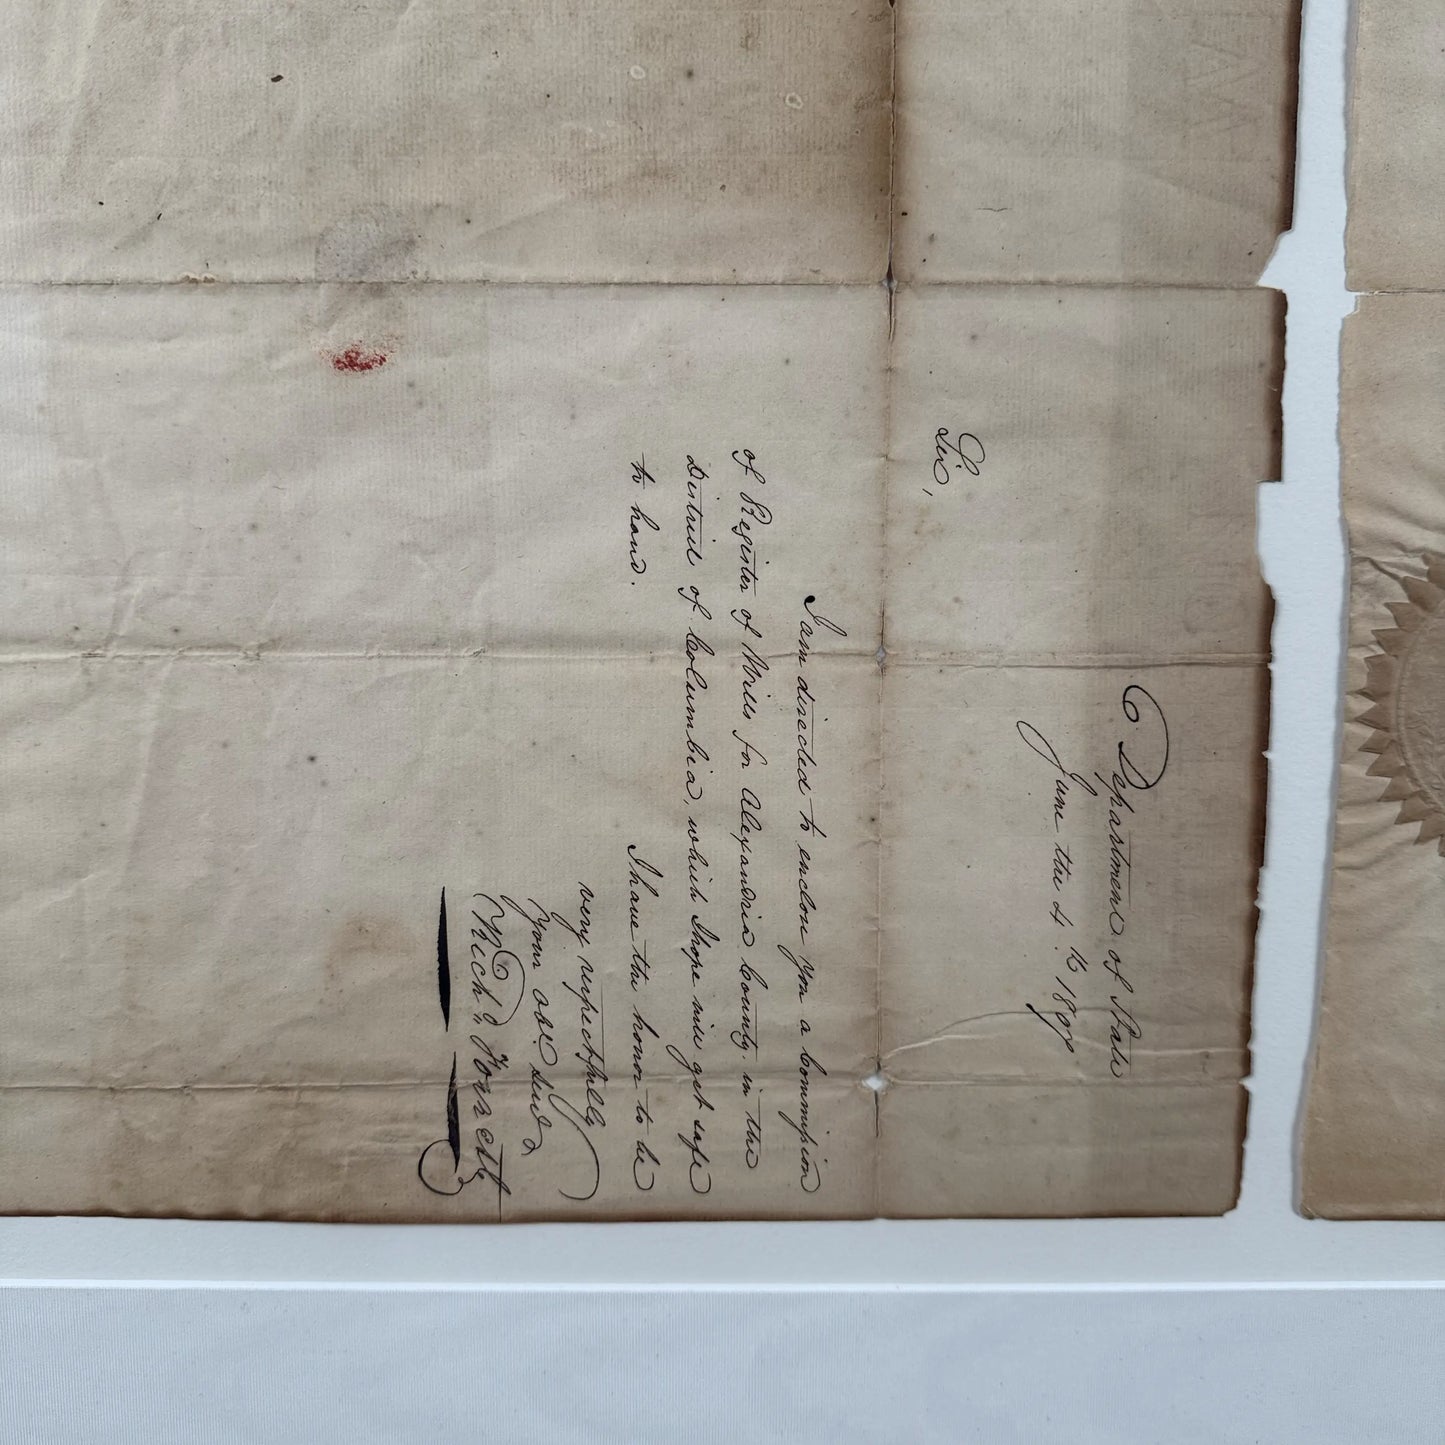 Department of State
June the 4th 180
Sir,
I am directed to enclose you a Commission
of Register of Wills for Alexandria County in the
District of Columbia, which I hope will get safe
to hand.
I have the honor to be
very respectfully
Your obt. Servt.
Richd. Forrest